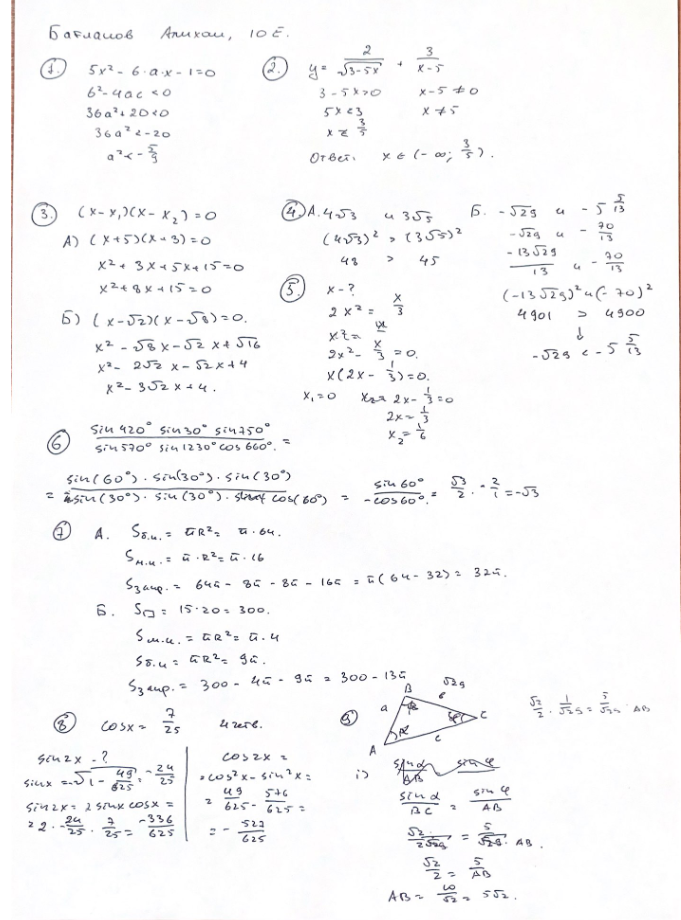 Батланов Алихан, 10 Е.
① 5x² - 6·a·x - 1 = 0
b² - 4ac < 0
36a² + 20 < 0
36a² < -20
a² < - 5/9
② y = 2/√(3-5x) + 3/(x-5)
3 - 5x > 0   x - 5 ≠ 0
5x < 3   x ≠ 5
x < 3/5
Ответ: x ∈ (-∞; 3/5).
③ (x-x₁)(x-x₂) = 0
А) (x+5)(x+3) = 0
x² + 3x + 5x + 15 = 0
x² + 8x + 15 = 0
Б) (x-√2)(x-√8) = 0.
x² - √8x - √2x + √16
x² - 2√2x - √2x + 4
x² - 3√2x + 4.
④ А. 4√3 и 3√5
(4√3)² > (3√5)²
48 > 45
Б. -√29 и -5 5/13
-√29 и - 70/13
-13√29/13 и - 70/13
(-13√29)² и (-70)²
4901 > 4900
↓
-√29 < -5 5/13
⑤ x - ?
2x² = x/3
2x² - x/3 = 0.
x(2x - 1/3) = 0.
x₁ = 0   2x - 1/3 = 0
2x = 1/3
x₂ = 1/6
⑥ sin420° sin30° sin750° / sin570° sin1230° cos660°. =
= sin(60°)·sin(30°)·sin(30°) / sin(30°)·sin(30°)·cos(60°) = sin60° / -cos60°. = √3/2 · - 2/1 = -√3
⑦ А. Sб.и. = πR² = π·64.
Sм.и. = π·R² = π·16
Sзакр. = 64π - 8π - 8π - 16π = π(64-32) = 32π.
Б. S▭ = 15·20 = 300.
Sм.и. = πR² = π·4
Sб.и = πR² = 9π.
Sзакр. = 300 - 4π - 9π = 300 - 13π
⑧ cosx = 7/25   4 четв.
sin2x - ?
sinx = -√(1 - 49/625) = -24/25
sin2x = 2 sinx cosx =
= 2·-24/25·7/25 = -336/625
cos2x =
= cos²x - sin²x =
= 49/625 - 576/625 =
= - 527/625
⑨ A B C a c √29 α φ
√2/2 · 1/√29 = 5/√29 · AB
1) sinα/BC = sinφ/AB
√2/2√29 = 5/√29·AB.
√2/2 = 5/AB
AB = 10/√2 = 5√2.